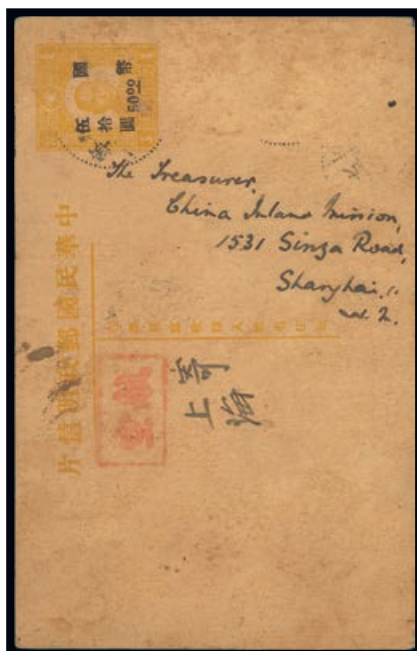 國幣
伍拾圓
50 00
The Treasurer,
China Inland Mission,
1531 Sinza Road,
Shanghai.
中華民國郵政明信片
寄
上海